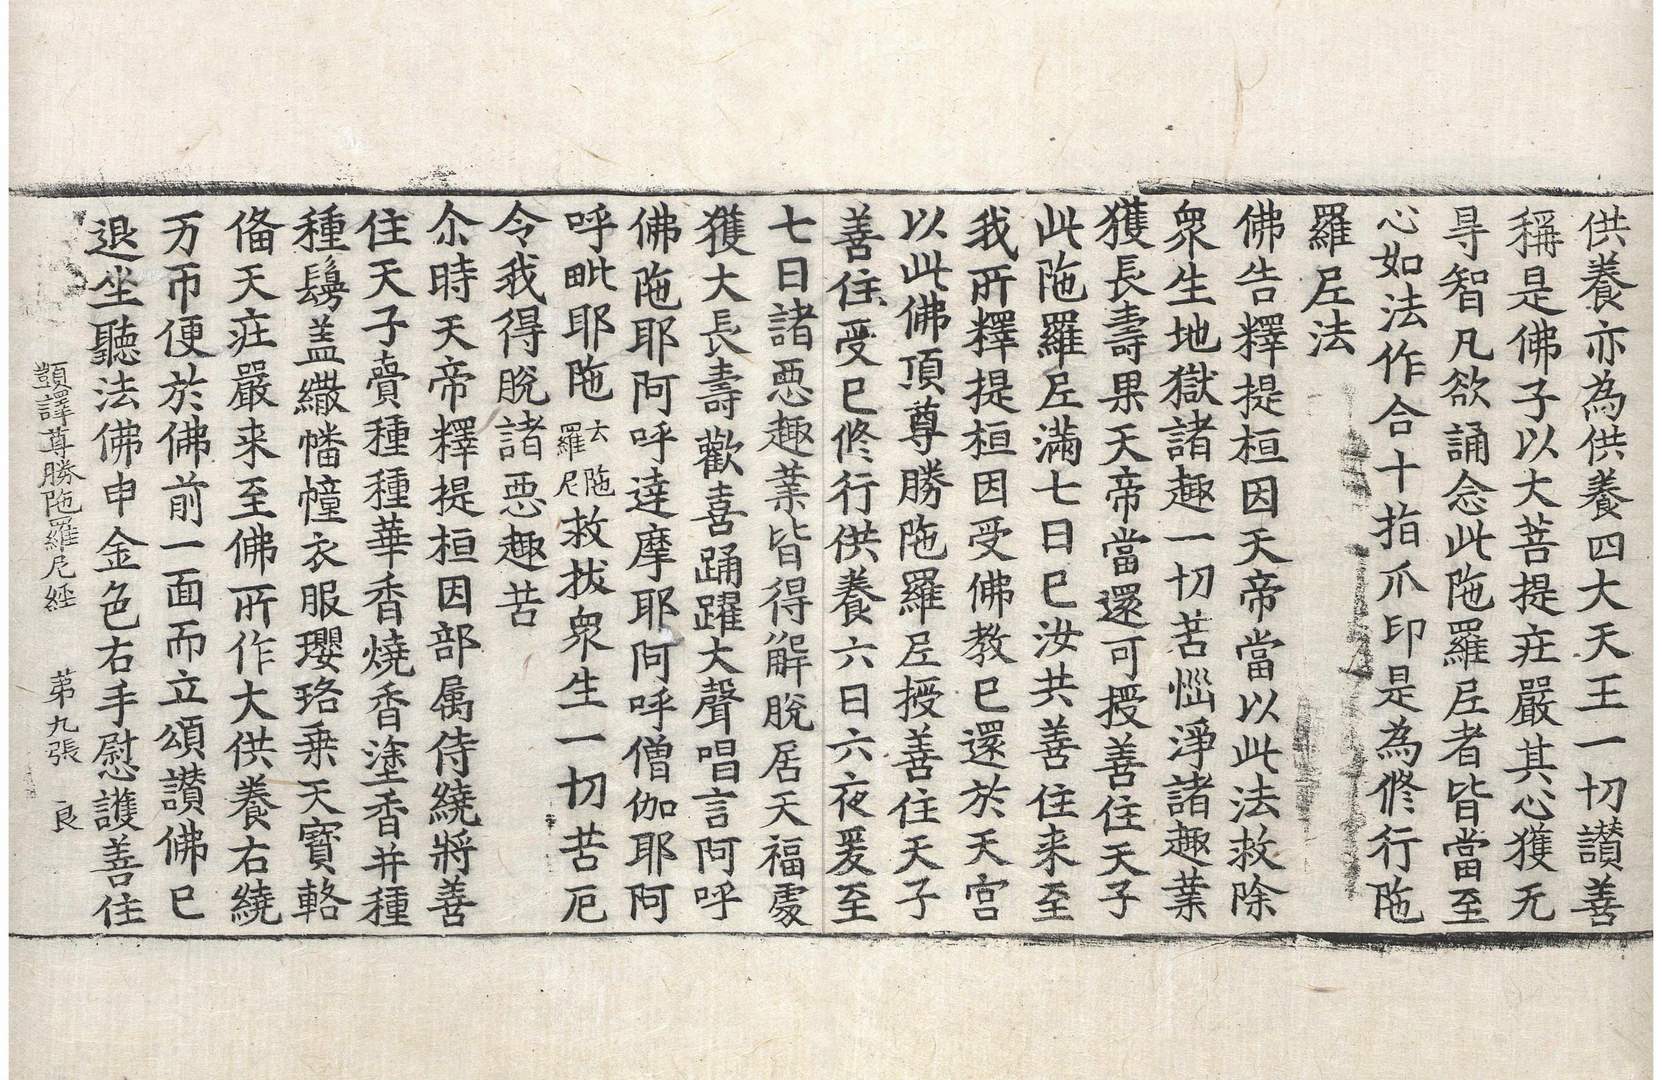 供養亦為供養四大天王一切讃善
稱是佛子以大菩提疘嚴其心獲无
㝵智凡欲誦念此陁羅𡰱者皆當至
心如法作合十指爪印是為修行陁
羅𡰱法
佛告釋提桓因天帝當以此法救除
衆生地獄諸趣一切苦惱淨諸趣業
獲長壽果天帝當還可授善住天子
此陁羅𡰱滿七日已汝共善住来至
我所釋提桓因受佛教已還於天宮
以此佛頂尊勝陁羅𡰱授善住天子
善住受已修行供養六日六夜爰至
七日諸惡趣業皆得解脫居天福處
獲大長壽歡喜踊躍大聲唱言阿呼
佛陁耶阿呼達摩耶阿呼僧伽耶阿
呼毗耶陁去陁羅尼救拔衆生一切苦厄
令我得脫諸惡趣苦
尒時天帝釋提桓因部属侍繞將善
住天子賷種種華香燒香塗香并種
種鬘盖繖幡幢衣服瓔珞乗天寳輅
俻天疘嚴来至佛所作大供養右繞
万帀便於佛前一面而立頌讃佛已
退坐聽法佛申金色右手慰護善住
顗譯尊勝陁羅尼經 第九張 良